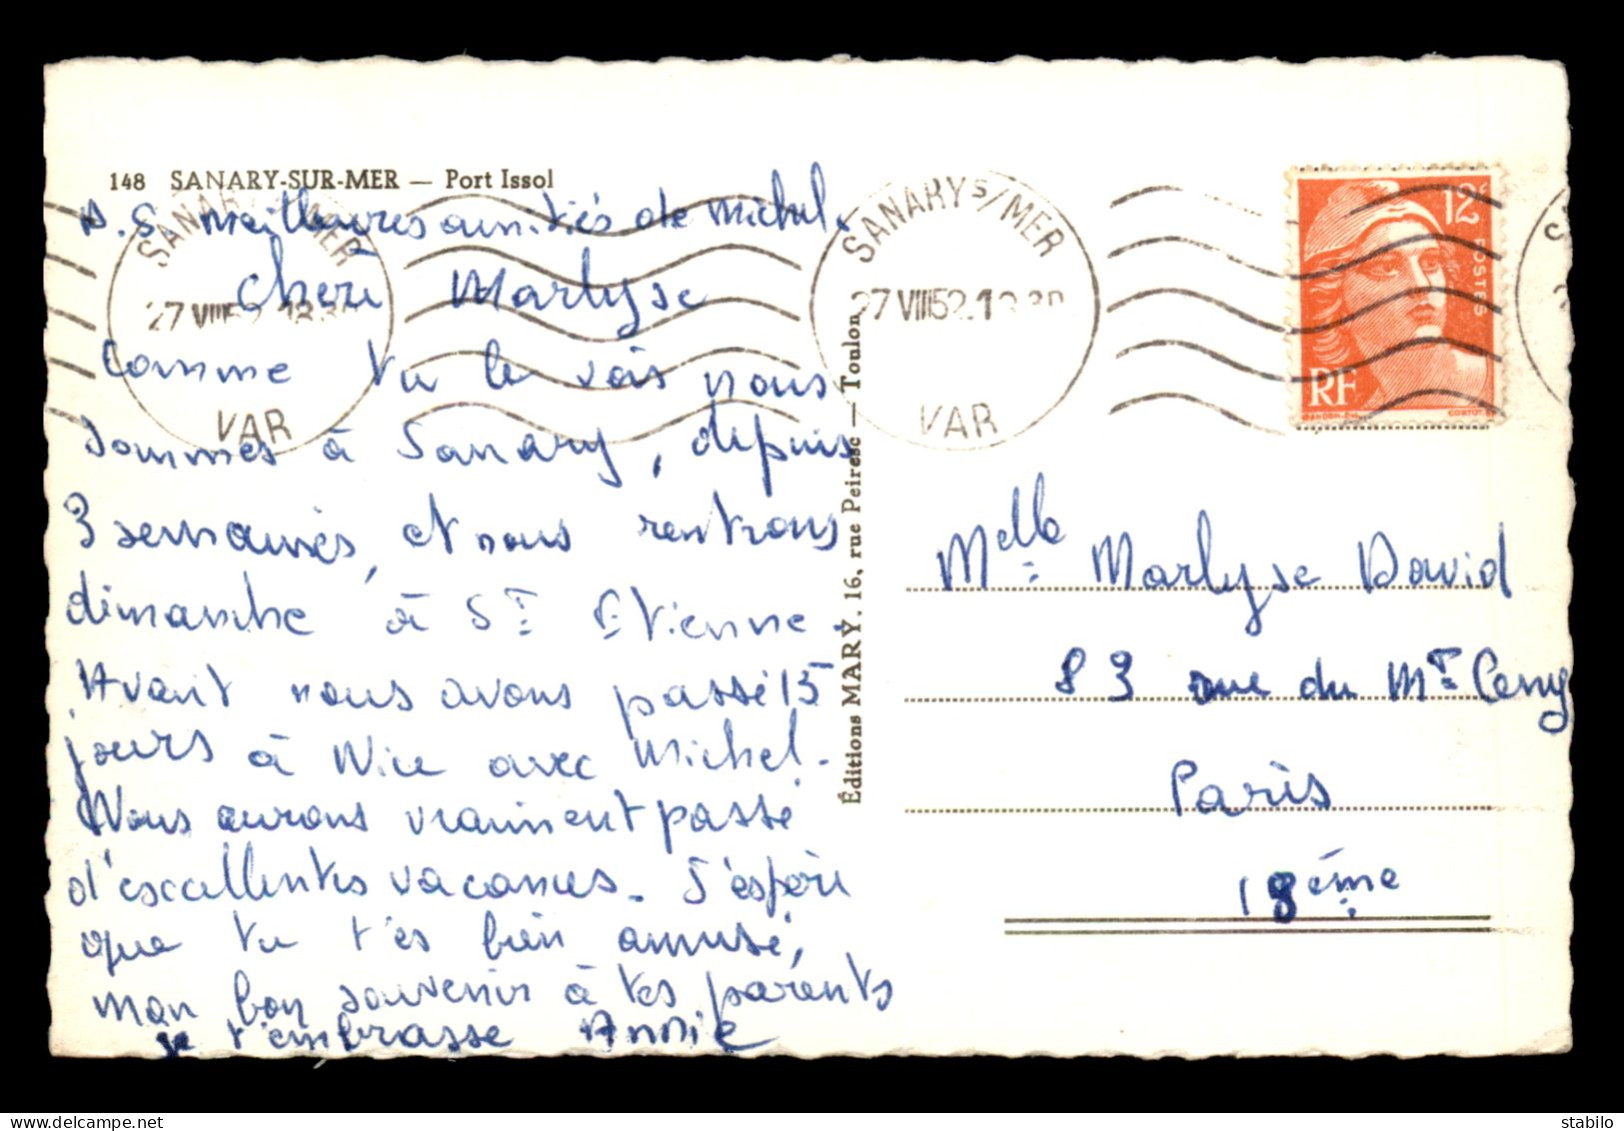 148 SANARY-SUR-MER — Port Issol
P.S. meilleures amitiés de Michel.
Chère Marlyse
Comme tu le vois nous
sommes à Sanary, depuis
3 semaines, et nous rentrons
dimanche à St Etienne
Avant nous avons passé 15
jours à Nice avec Michel.
Nous aurons vraiment passé
d'excellentes vacances. J'espère
que tu t'es bien amusé,
mon bon souvenir à tes parents
je t'embrasse Annie
Éditions MARY, 16, rue Peiresc — Toulon
SANARY S/MER
27 VIII 52. 18 30
VAR
SANARY S/MER
27 VIII 52. 18 30
VAR
12F
POSTES
RF
Melle Marlyse David
83 rue du Mt Cenis
Paris
18ème
delcampe.net
stabilo